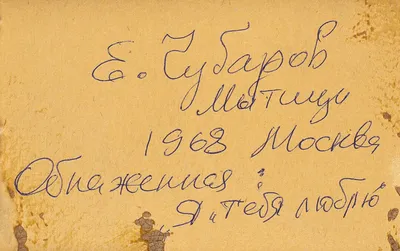 Е. Чубаров
Мытищи
1968 Москва
Обнаженная :
Я „тебя люблю"